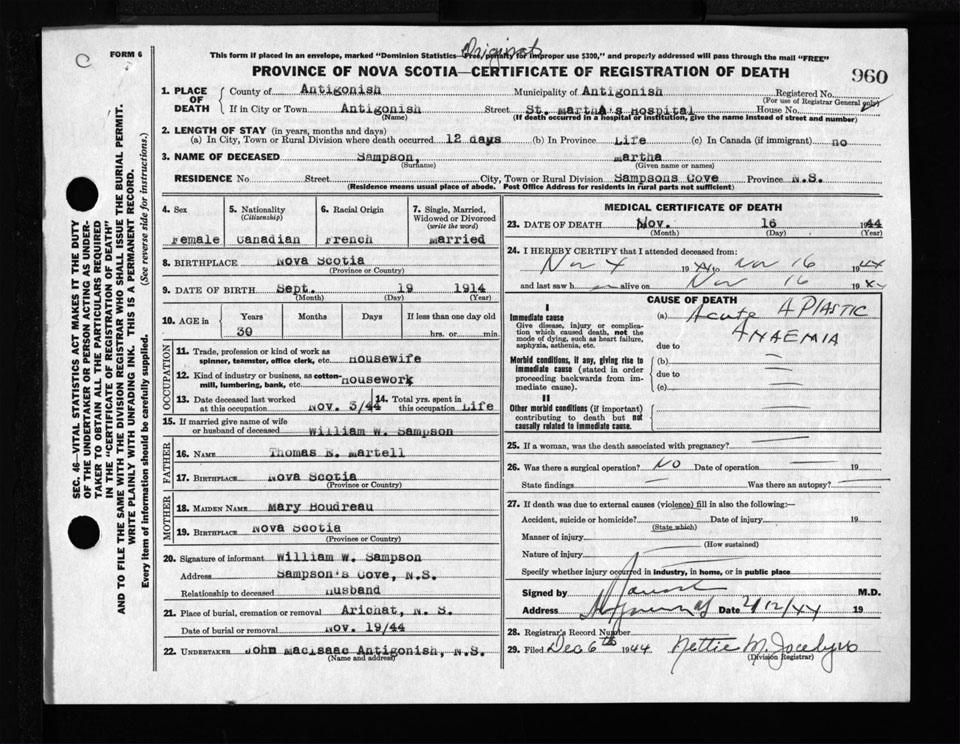 FORM 6
This form if placed in an envelope, marked "Dominion Statistics—Free, penalty for improper use $300," and properly addressed will pass through the mail "FREE"
Original
PROVINCE OF NOVA SCOTIA—CERTIFICATE OF REGISTRATION OF DEATH
960
1. PLACE OF DEATH
County of Antigonish Municipality of Antigonish Registered No.
(For use of Registrar General only)
If in City or Town Antigonish Street St. Martha's Hospital House No.
(Name) (If death occurred in a hospital or institution, give the name instead of street and number)
2. LENGTH OF STAY (in years, months and days)
(a) In City, Town or Rural Division where death occurred 12 days (b) In Province Life (c) In Canada (if immigrant) no
3. NAME OF DECEASED Sampson, Martha
(Surname) (Given name or names)
RESIDENCE No Street City, Town or Rural Division Sampsons Cove Province N.S.
(Residence means usual place of abode. Post Office Address for residents in rural parts not sufficient)
4. Sex 5. Nationality (Citizenship) 6. Racial Origin 7. Single, Married, Widowed or Divorced (write the word)
Female Canadian French Married
8. BIRTHPLACE Nova Scotia
(Province or Country)
9. DATE OF BIRTH Sept. 19 1914
(Month) (Day) (Year)
10. AGE in Years Months Days If less than one day old
30 hrs. or min.
OCCUPATION
11. Trade, profession or kind of work as spinner, teamster, office clerk, etc. Housewife
12. Kind of industry or business, as cotton-mill, lumbering, bank, etc. Housework
13. Date deceased last worked at this occupation Nov. 3/44 14. Total yrs. spent in this occupation Life
15. If married give name of wife or husband of deceased William W. Sampson
FATHER
16. NAME Thomas E. Martell
17. BIRTHPLACE Nova Scotia
(Province or Country)
MOTHER
18. MAIDEN NAME Mary Boudreau
19. BIRTHPLACE Nova Scotia
(Province or Country)
20. Signature of informant William W. Sampson
Address Sampson's Cove, N.S.
Relationship to deceased Husband
21. Place of burial, cremation or removal Arichat, N. S.
Date of burial or removal Nov. 19/44
22. UNDERTAKER John MacIsaac Antigonish, N.S.
(Name and address)
MEDICAL CERTIFICATE OF DEATH
23. DATE OF DEATH Nov. 16 1944
(Month) (Day) (Year)
24. I HEREBY CERTIFY that I attended deceased from:
Nov 4 1944 to Nov 16 1944
and last saw h alive on Nov 16 1944
CAUSE OF DEATH
I
Immediate cause
Give disease, injury or complication which caused death, not the mode of dying, such as heart failure, asphyxia, asthenia, etc.
(a) Acute APLASTIC
ANAEMIA
due to
Morbid conditions, if any, giving rise to immediate cause (stated in order proceeding backwards from immediate cause).
(b)
due to
(c)
II
Other morbid conditions (if important) contributing to death but not causally related to immediate cause.
25. If a woman, was the death associated with pregnancy?
26. Was there a surgical operation? NO Date of operation 19
State findings Was there an autopsy?
27. If death was due to external causes (violence) fill in also the following:—
Accident, suicide or homicide? Date of injury 19
(State which)
Manner of injury
(How sustained)
Nature of injury
Specify whether injury occurred in industry, in home, or in public place
Signed by M.D.
Address Date 2/12/44 19
28. Registrar's Record Number
29. Filed Dec 6th 1944 Nettie M. Jocelyn
(Division Registrar)
SEC. 46—VITAL STATISTICS ACT MAKES IT THE DUTY
OF THE UNDERTAKER OR PERSON ACTING AS UNDER-
TAKER TO OBTAIN ALL THE PARTICULARS REQUIRED
IN THE "CERTIFICATE OF REGISTRATION OF DEATH"
AND TO FILE THE SAME WITH THE DIVISION REGISTRAR WHO SHALL ISSUE THE BURIAL PERMIT.
WRITE PLAINLY WITH UNFADING INK. THIS IS A PERMANENT RECORD.
Every item of information should be carefully supplied. (See reverse side for instructions.)